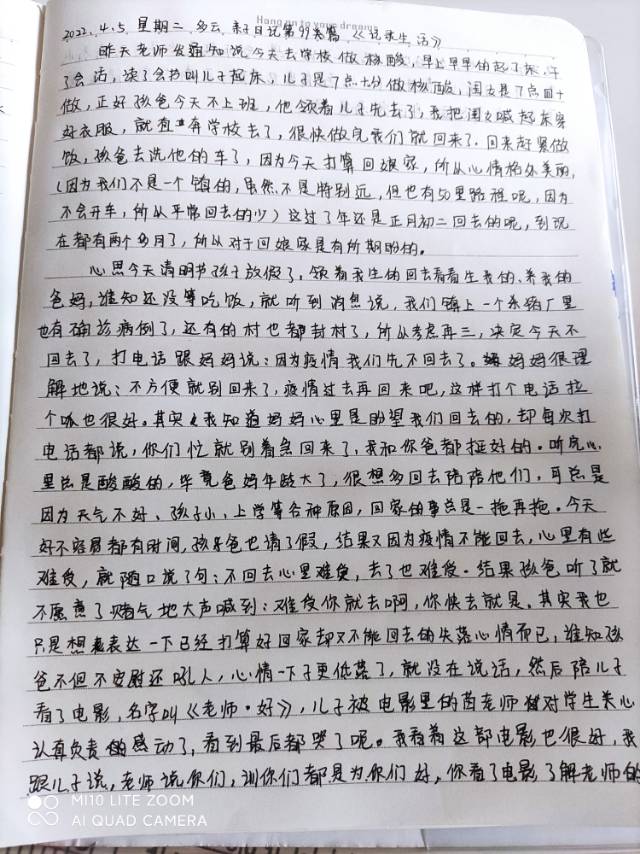 Hang on to your dreams
2022.4.5 星期二 多云 亲子日记第99来篇《记录生活》
昨天老师发通知说今天去学校做核酸,早上早早的起了床,干
了会活,读了会书叫儿子起床,儿子是7点十分做核酸,闺女是7点四十
做,正好孩爸今天不上班,他领着儿子先去了,我把闺女喊起来穿
好衣服,就有去学校去了,很快做完我们就回来了.回来赶紧做
饭,孩爸去洗他的车了,因为今天打算回娘家,所以心情格外美丽,
(因为我们不是一个镇的,虽然不是特别远,但也有50里路程呢,因为
不会开车,所以平常回去的少)这过了年还是正月初二回去的呢,到现
在都有两个多月了,所以对于回娘家是有所期盼的。
心思今天清明节孩子放假了,领着我生的回去看看生我的、养我的
爸妈,谁知还没等吃饭,就听到消息说,我们镇上一个杀猪厂里
也有确诊病例了,还有的村也都封村了,所以考虑再三,决定今天不
回去了,打电话跟妈妈说:因为疫情我们先不回去了。妈妈很理
解地说:不方便就别回来了,疫情过去再回来吧,这样打个电话拉
个呱也很好。其实我知道妈妈心里是盼望我们回去的,却每次打
电话都说,你们忙就别着急回来了,我和你爸都挺好的。听完心
里总是酸酸的,毕竟爸妈年龄大了,很想多回去陪陪他们,可总是
因为天气不好、孩子小、上学等各种原因,回家的事总是一拖再拖。今天
好不容易都有时间,孩子爸也请了假,结果又因为疫情不能回去,心里有些
难受,就随口说了句:不回去心里难受,去了也难受。结果孩爸听了就
不愿意了赌气地大声喊到:难受你就去啊,你快去就是。其实我也
只是想表达一下已经打算好回家却又不能回去的失落心情而已,谁知孩
爸不但不安慰还吼人,心情一下子更低落了,就没在说话,然后陪儿子
看了电影,名字叫《老师·好》,儿子被电影里的苗老师对学生关心
认真负责的感动了,看到最后都哭了呢。我看着这部电影也很好,我
跟儿子说,老师说你们,训你们都是为你们好,你看了电影了解老师的
MI 10 LITE ZOOM
AI QUAD CAMERA